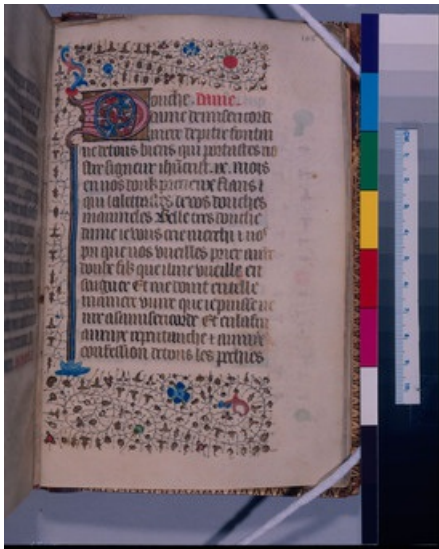 Douche Dame
dame de misericorde
mere de pitie fontai
ne de tous biens qui portastes no
stre signeur ihucrist .ix. mois
en vos
qui de vos douches
mamieles Belle tres douche
dame ie vous crie merchi i vo
pri que vos vueilles prier a
doulx fil que il me vueille en
saignier Et me doint en telle
maniere viure que ie puisse ve
nir a sa misericorde Et en la fin
a uraye repentanche i a uraye
confession de tous les pechies